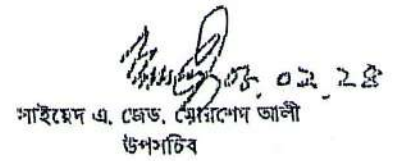 ০৮.০২.২৪
সাইয়েদ এ. জেড. মোরশেদ আলী
উপসচিব